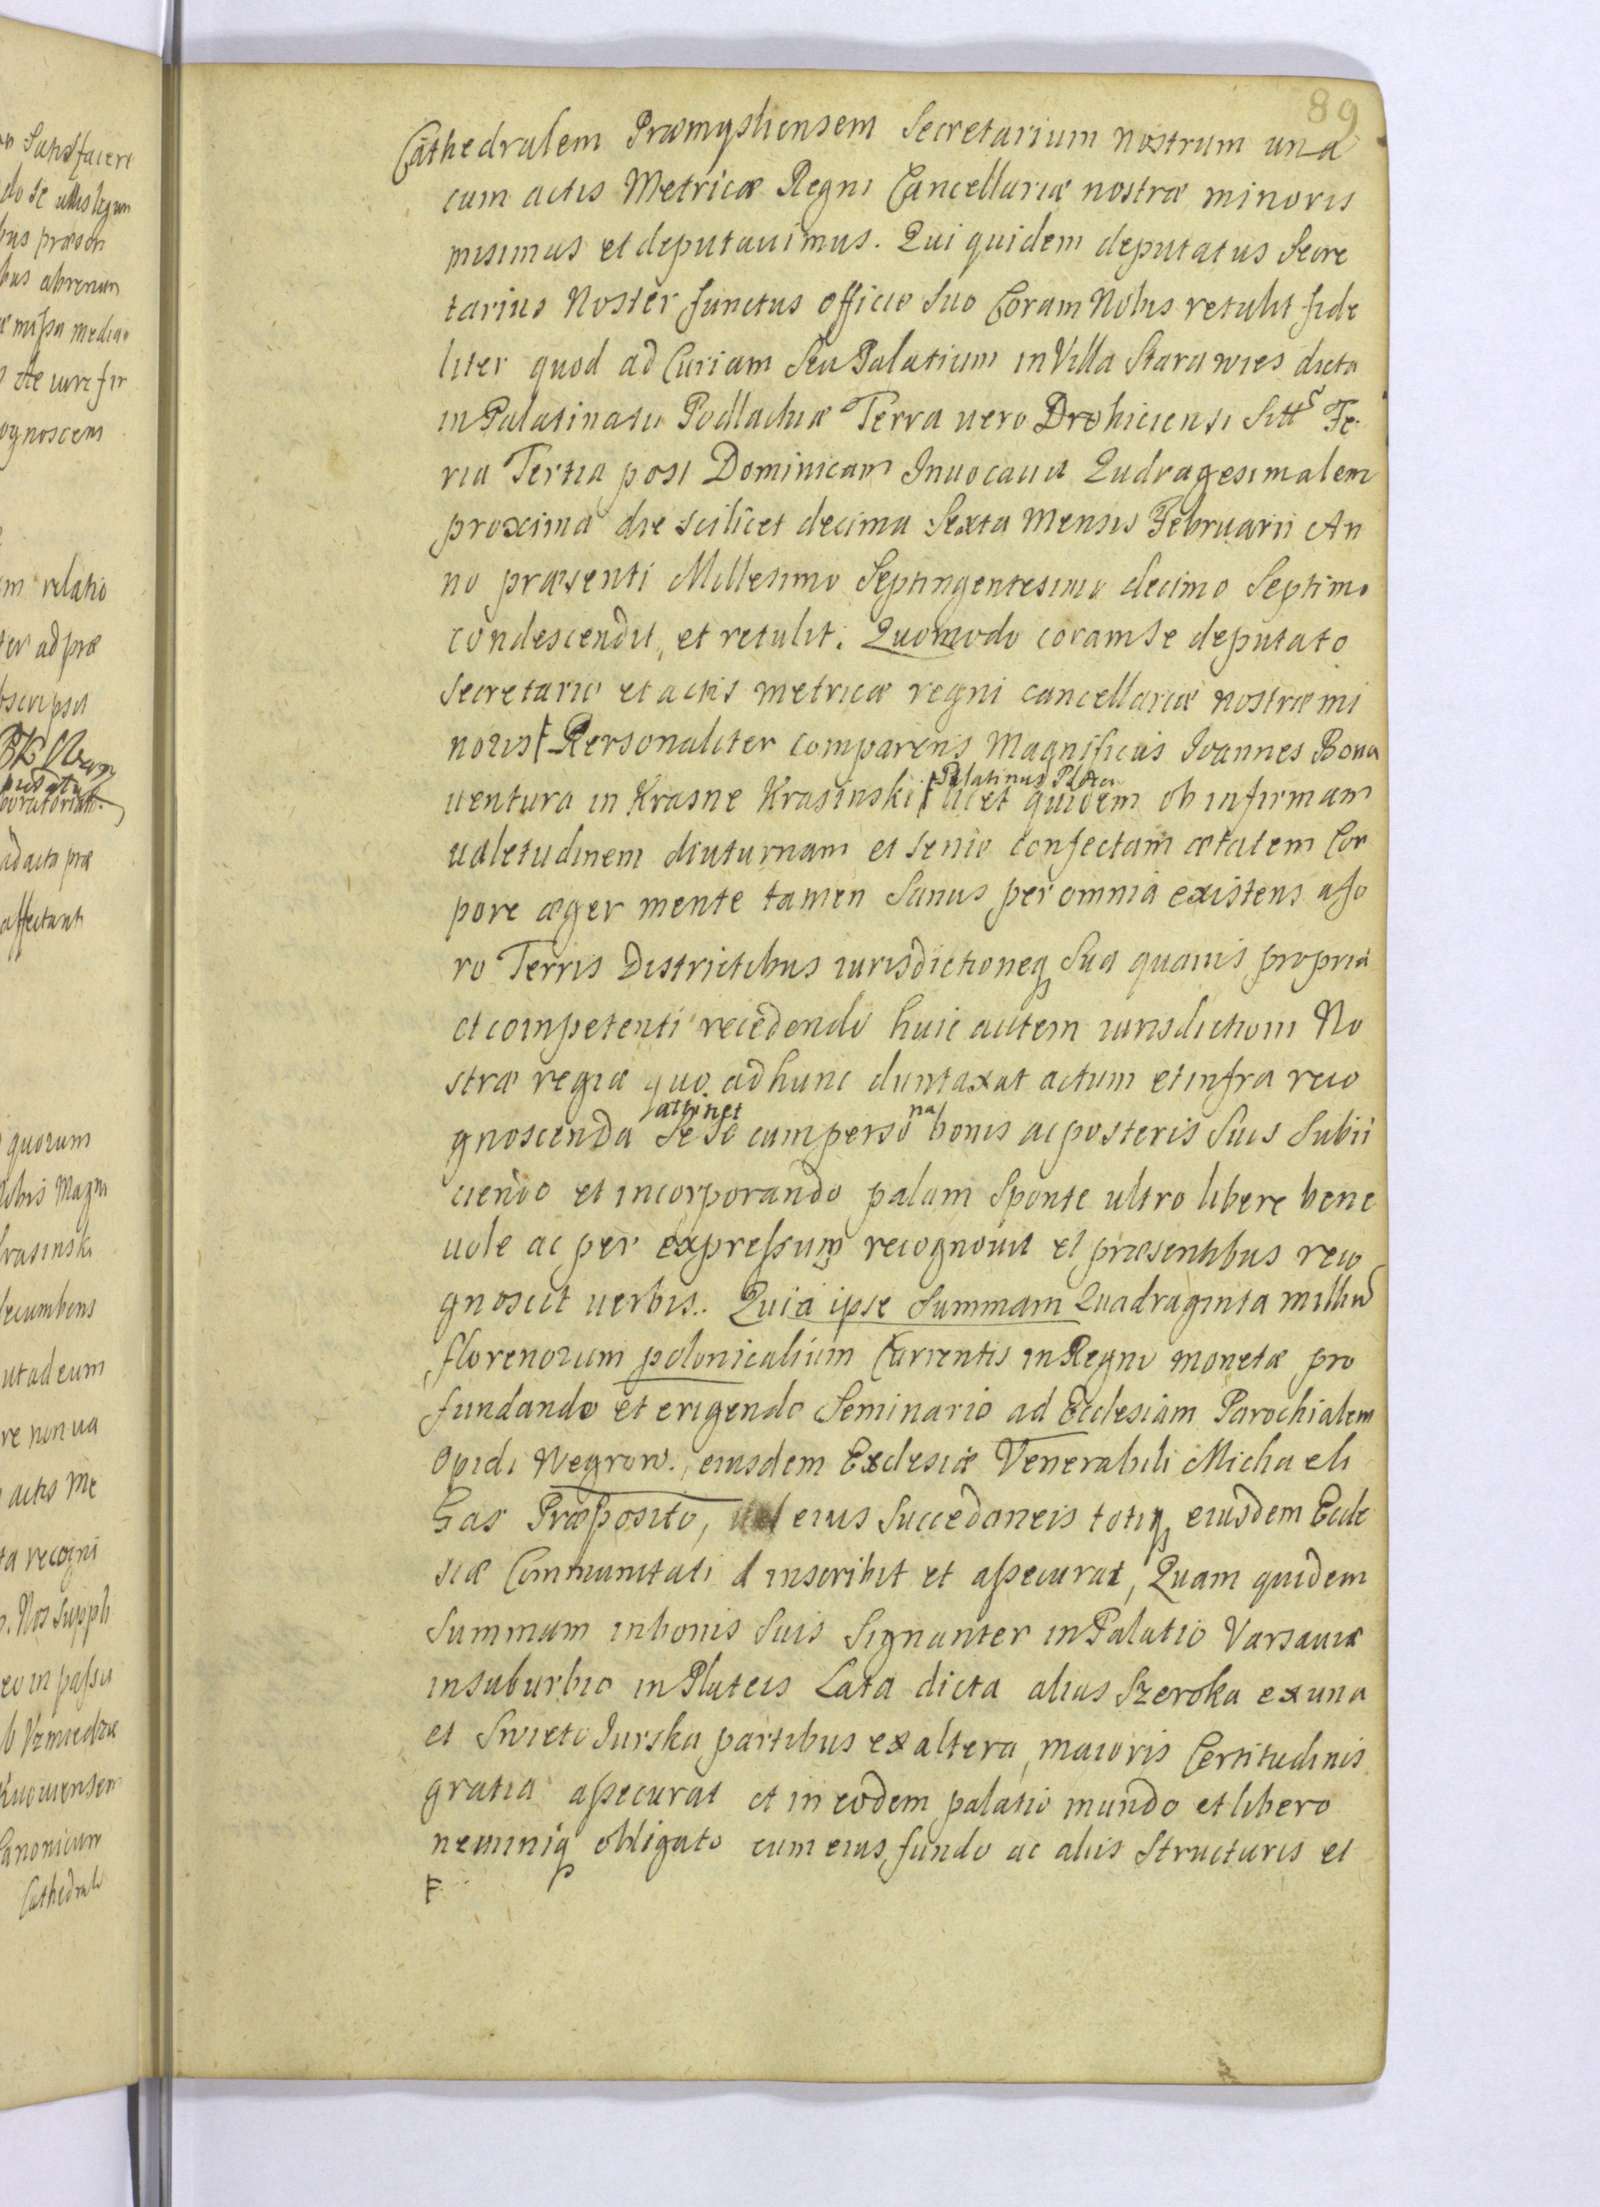 89
Cathedralem Præmysliensem Secretarium nostrum una
cum actis Metricæ Regni Cancellariæ nostræ minoris
misimus et deputauimus. Qui quidem deputatus Secre
tarius Noster functus officio Suo Coram Nobis retulit fide
liter quod ad Curiam Seu Palatium in Villa Stara wies dicta
in Palatinatu Podlachiæ Terra uero Drohiciensi Sitt Fe
ria Tertia post Dominicam Inuocauit Qudragesimalem
proxima die scilicet decima Sexta Mensis Februarii An
no præsenti Millesimo Septingentesimo decimo Septimo
condescendit, et retulit. Quomodo coram se deputato
Secretario et actis metricæ regni cancellariæ nostræ mi
noris Personaliter comparens Magnificus Ioannes Bona
uentura in Krasne Krasinski Palatinus Plocen licet quidem ob infirmam
ualetudinem diuturnam et senio confectam ætatem Cor
pore æger mente tamen Sanus per omnia existens a fo
ro Terris Districtibus iurisdictioneq Sua quauis propria
et competenti recedendo huic autem iurisdictioni No
stræ regiæ quo ad hunc duntaxat actum et infra reco
gnoscenda attinet Se Se cum persona bonis ac posteris Suis Subii
ciendo et incorporando palam Sponte ultro libere bene
uole ac per expressum recognouit et præsentibus reco
gnoscit uerbis. Quia ipse Summam Quadraginta milliu
florenorum polonicalium Currentis in Regno monetæ pro
fundando et erigendo Seminario ad Ecclesiam Parochialem
Opidi Wegrow. eiusdem Ecclesiæ Venerabili Michaeli
Gas Præposito, eius Succedaneis totiq eiusdem Eccle
siæ Communitati inscribit et assecurat, Quam quidem
Summam in bonis Suis Signanter in Palatio Varsauiæ
in suburbio in Plateis Lata dicta alias Szeroka ex una
et Swieto Iurska partibus ex altera, maioris Certitudinis
gratia assecurat et in eodem palatio mundo et libero
neminiq obligato cum eius fundo ac aliis Structuris et